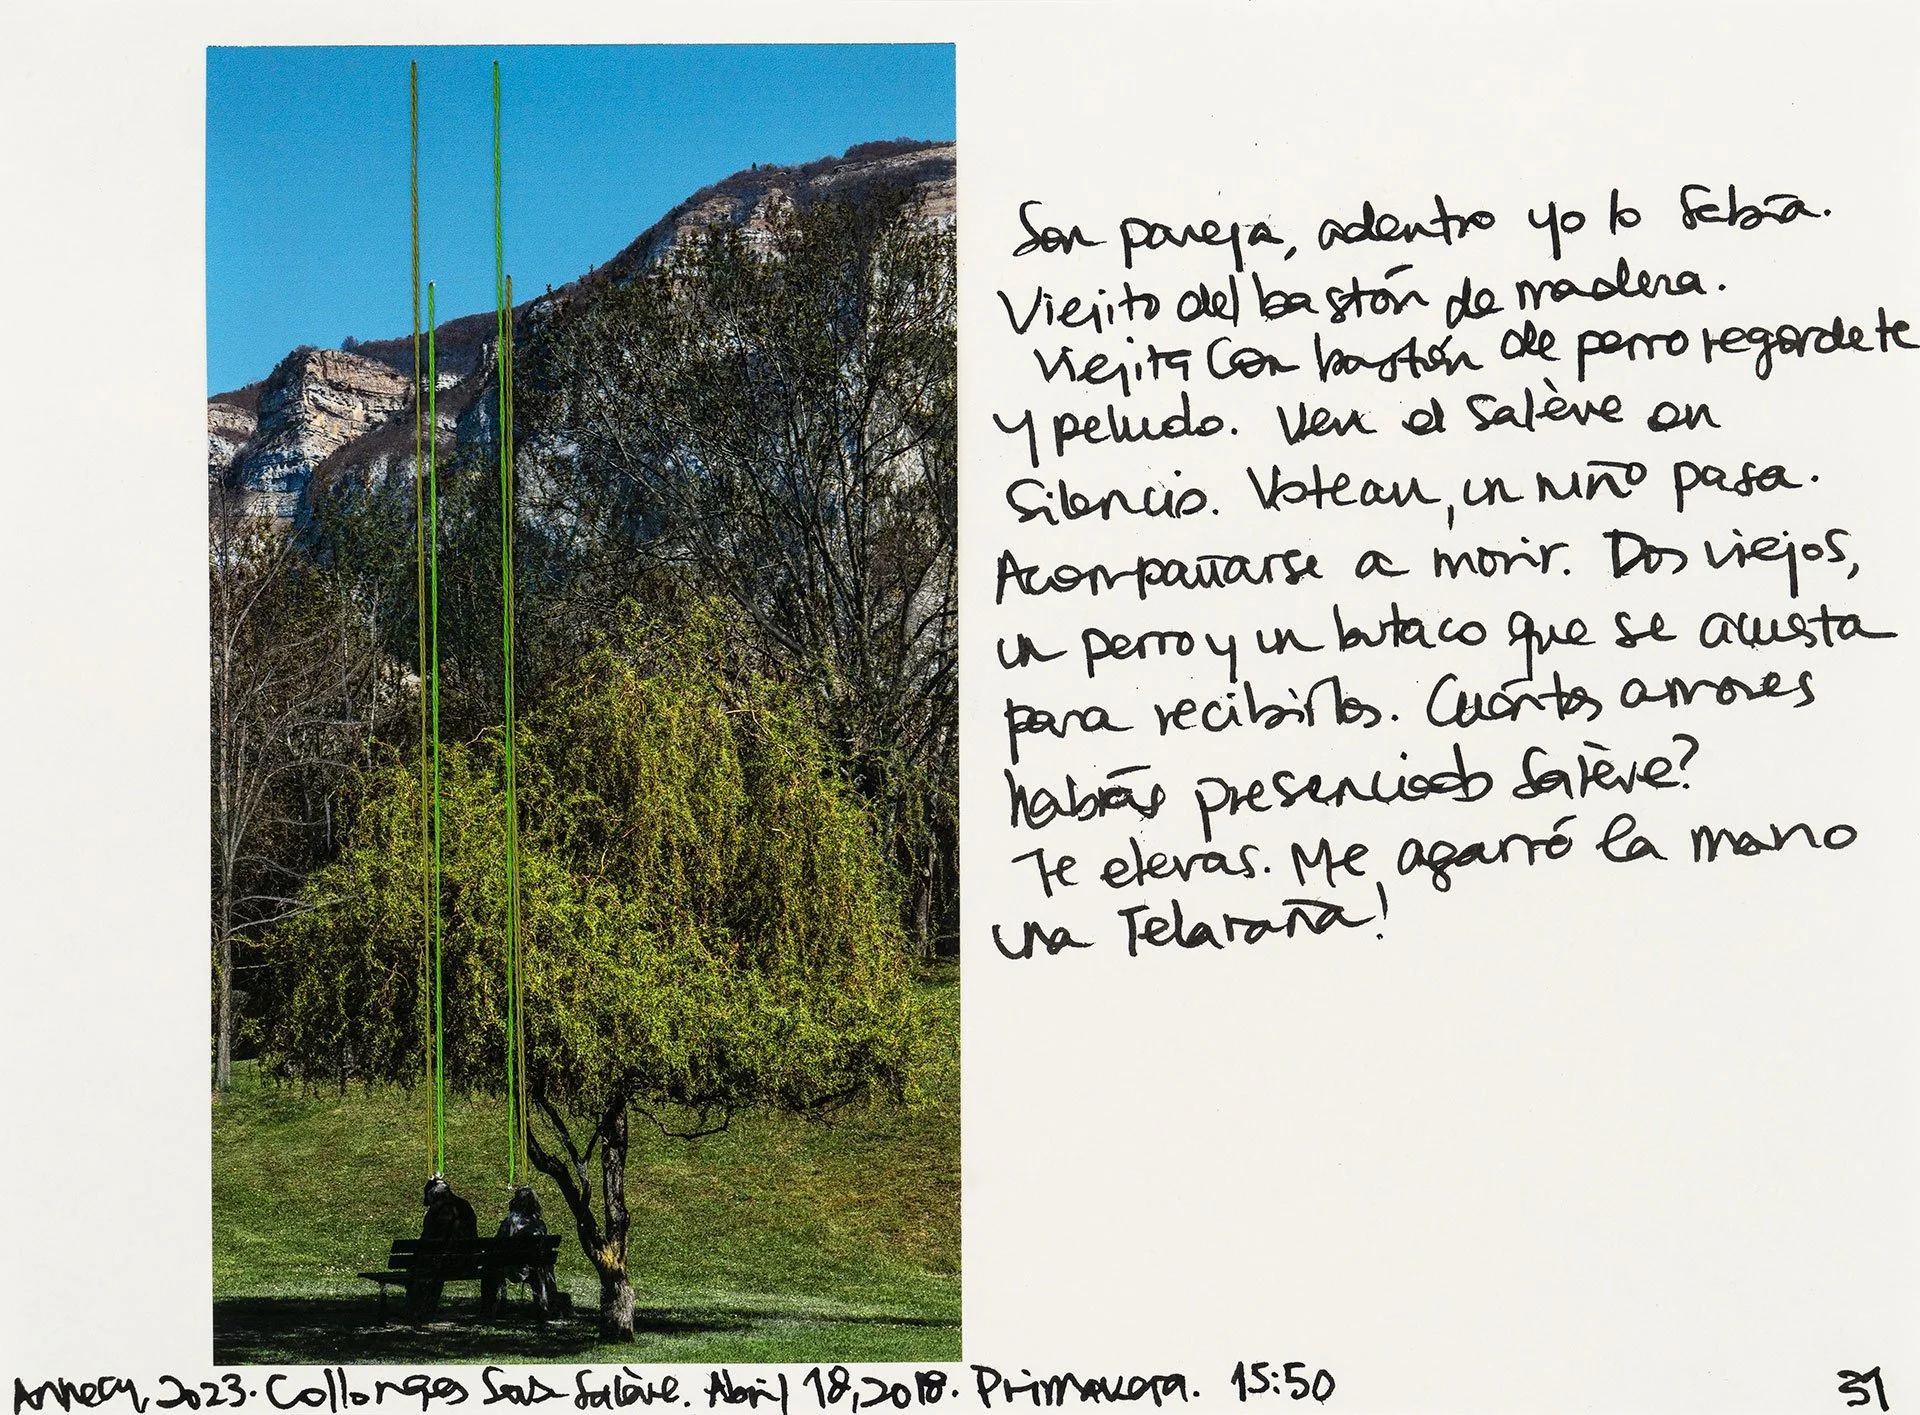 Son pareja, adentro yo lo sabía.
Viejito del bastón de madera.
Viejita con bastón de perro regordete
y peludo. Ven el Salève en
silencio. Votean, un niño pasa.
Acompañarse a morir. Dos viejos,
un perro y un butaco que se acuesta
para recibirlos. Cuántos amores
habrás presenciado Salève?
Te elevas. Me agarró la mano
una Telaraña!
Annecy, 2023. Collonges Sous Salève. Abril 18, 2018. Primavera. 15:50
31